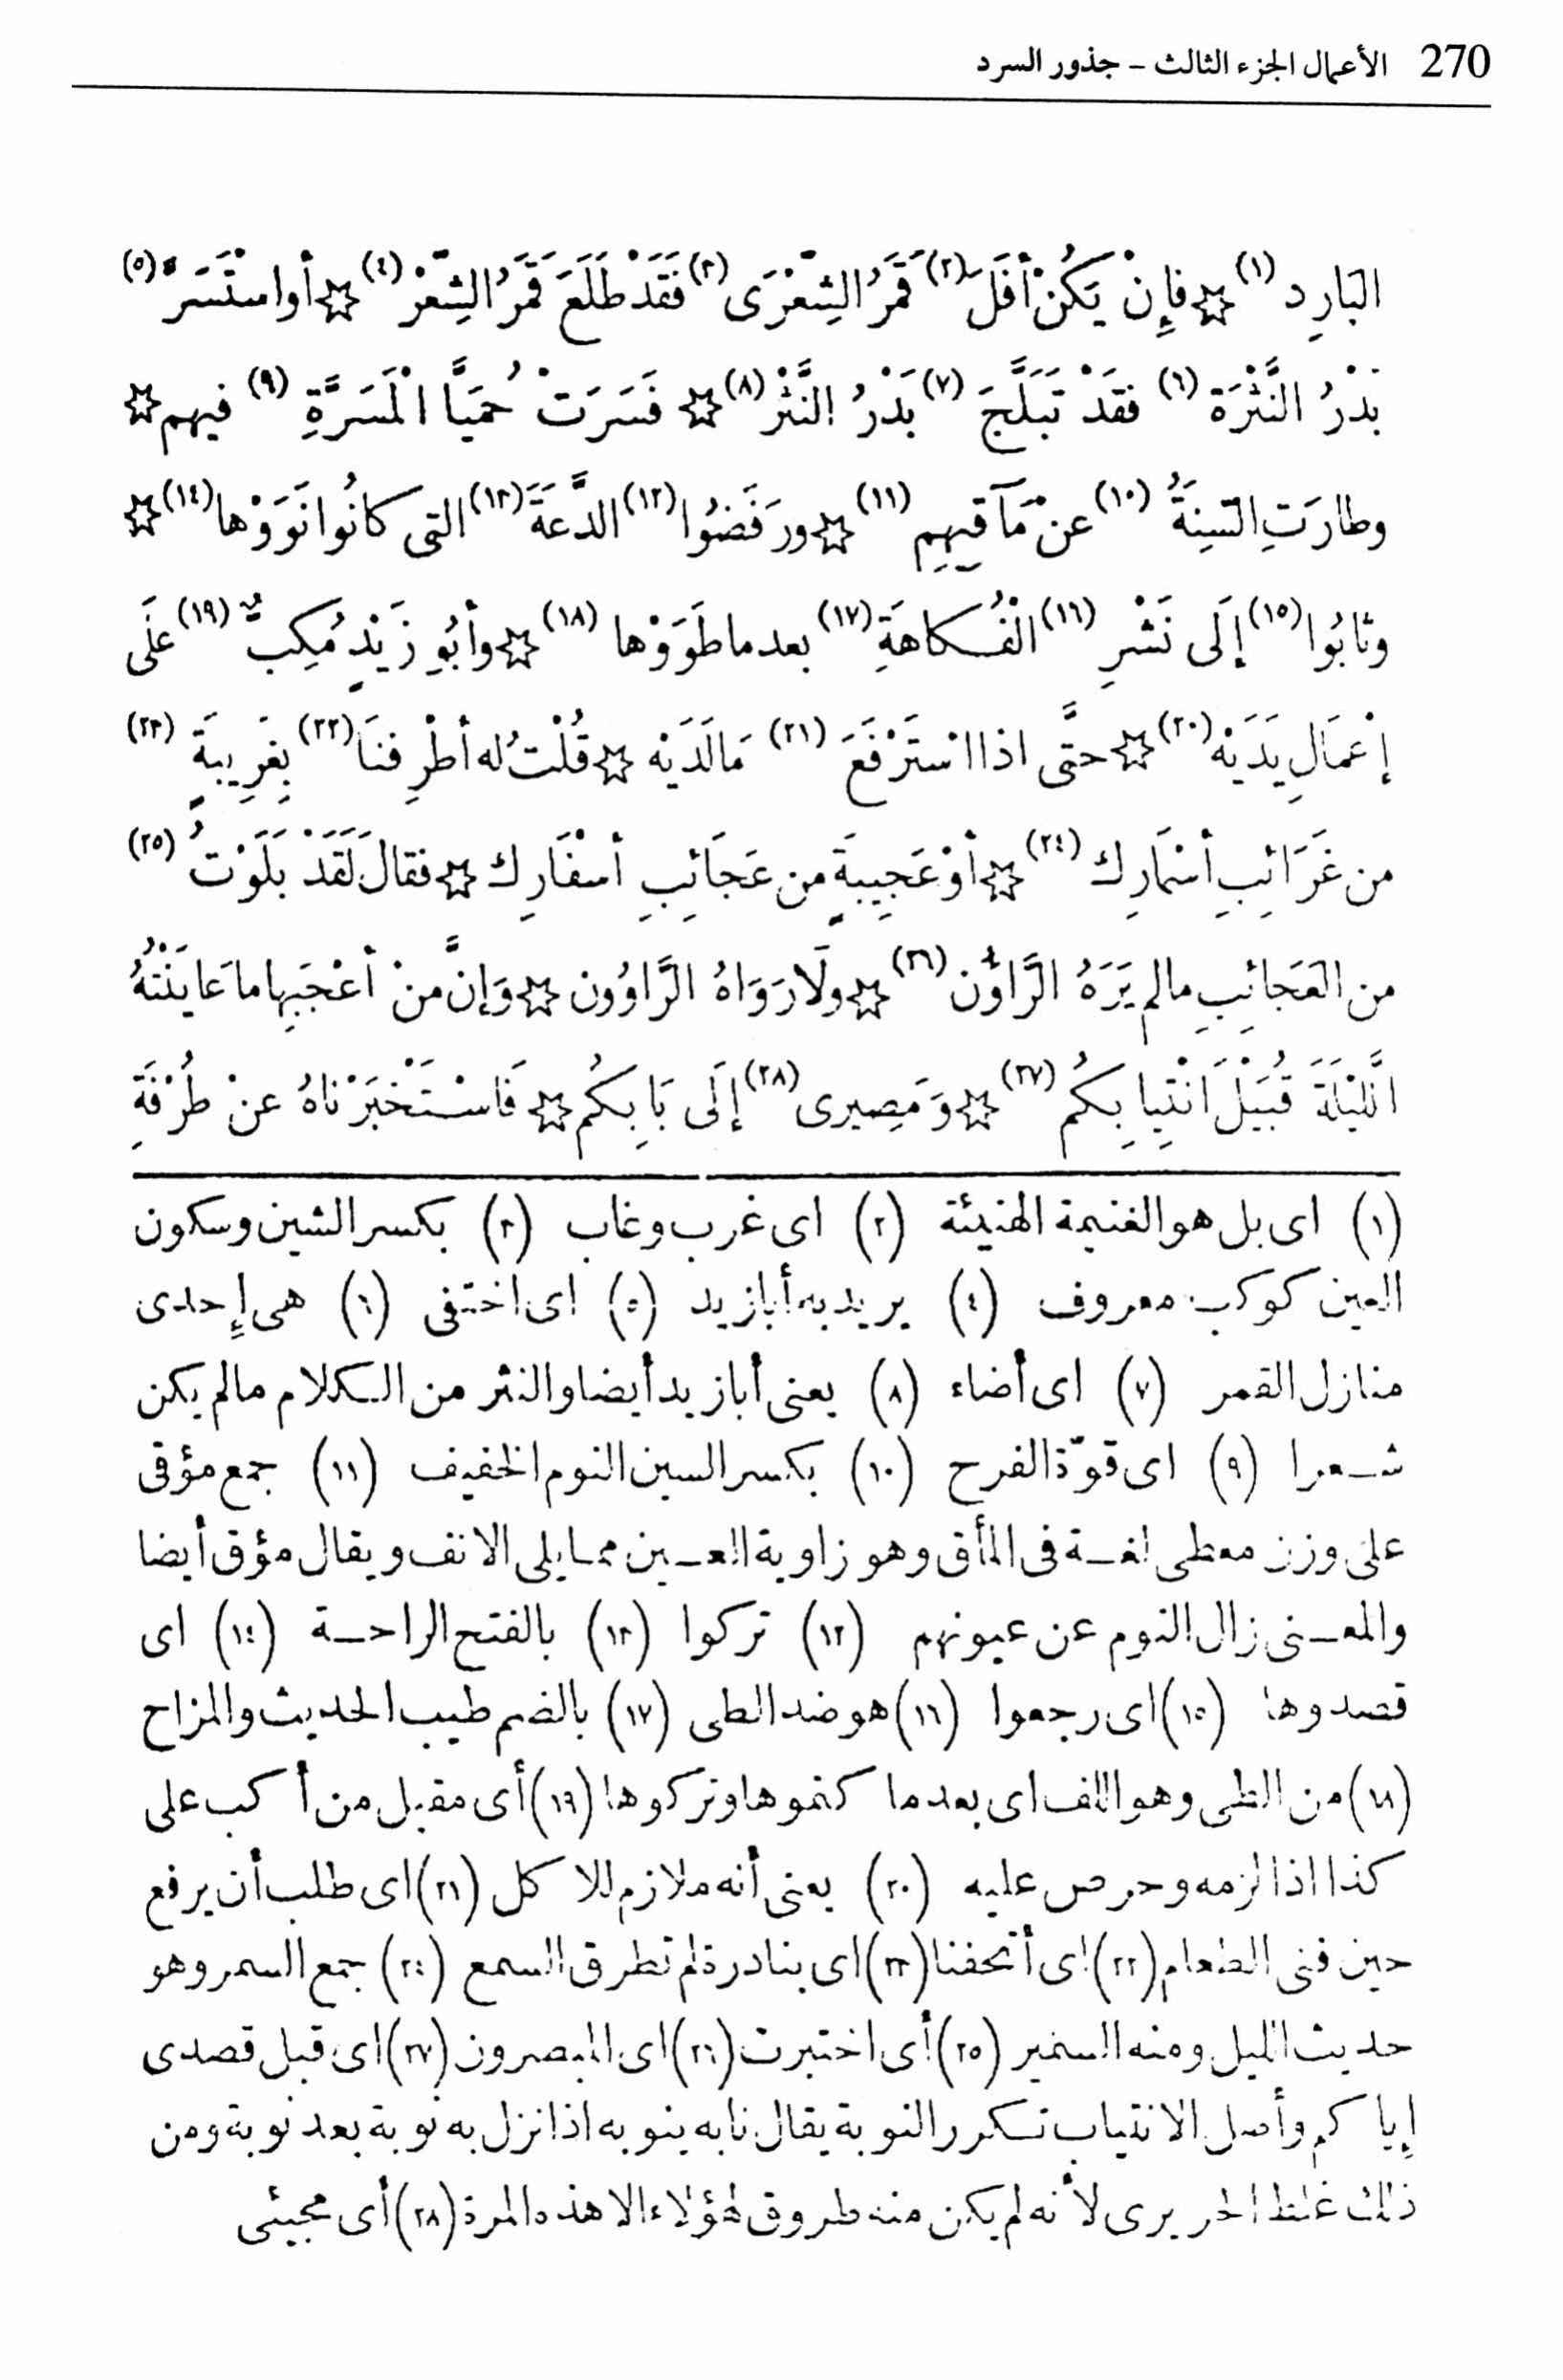 270 الأعمال الجزء الثالث - جذور السرد
البَارِد (١) ☆ فإِنْ يَكُنْ أَفَلَ (٢) قَمَرُ الشِّعْرَى (٣) فَقَدْ طَلَعَ قَمَرُ الشِّعْرْ (٤) ☆ أو اسْتَسَرَّ (٥)
بَدْرُ النَّثْرَة (٦) فقَدْ تَبَلَّجَ (٧) بَدْرُ النَّثْرْ (٨) ☆ فَسَرَتْ حُمَيَّا الْمَسَرَّةِ (٩) فيهم ☆
وطارَتِ السِّنَةُ (١٠) عن مَآقِيهِم (١١) ☆ ورَفَضُوا (١٢) الدَّعَةَ (١٣) التى كانُوا نَوَوْها (١٤) ☆
وثابُوا (١٥) إلَى نَشْرِ (١٦) الْفُكاهَةِ (١٧) بعدما طَوَوْها (١٨) ☆ وأبُو زَيْدٍ مُكِبٌّ (١٩) عَلَى
إعْمَالِ يَدَيْه (٢٠) ☆ حتَّى اذا اسْتَرْفَعَ (٢١) مَا لَدَيْه ☆ قُلْتُ له أطْرِفنَا (٢٢) بِغَرِيبَةٍ (٢٣)
من غَرَائِبِ أسْمَارِك (٢٤) ☆ أوْ عَجِيبةٍ من عَجَائِبِ أسْفَارِك ☆ فقال لَقَدْ بَلَوْتُ (٢٥)
من العَجَائِبِ مالم يَرَهُ الرَّاؤُن (٢٦) ☆ ولَا رَوَاهُ الرَّاوُون ☆ وَإنَّ منْ أعْجَبِها ما عَايَنْتُهُ
اللَّيْلَةَ قُبَيْلَ انْتِيابِكُم (٢٧) ☆ وَمَصِيرى (٢٨) إلَى بَابِكُم ☆ فَاسْتَخْبَرْناهُ عنْ طُرْفَةِ
(١) اى بل هو الغنيمة الهنيئة (٢) اى غرب وغاب (٣) بكسر الشين وسكون
العين كوكب معروف (٤) يريد به أبازيد (٥) اى اختفى (٦) هى إحدى
منازل القمر (٧) اى أضاء (٨) يعنى أبازيد أيضا والنثر من الكلام مالم يكن
شعرا (٩) اى قوّة الفرح (١٠) بكسر السين النوم الخفيف (١١) جمع مؤقى
على وزن معطى لغة فى المأق وهو زاوية العين مما يلى الانف ويقال مؤق أيضا
والمعنى زال النوم عن عيونهم (١٢) تركوا (١٣) بالفتح الراحة (١٤) اى
قصدوها (١٥) اى رجعوا (١٦) هو ضد الطى (١٧) بالضم طيب الحديث والمزاح
(١٨) من الطى وهو اللف اى بعدما كتموها وتركوها (١٩) أى مقبل من أكب على
كذا اذا لزمه وحرص عليه (٢٠) يعنى أنه ملازم للاكل (٢١) اى طلب أن يرفع
حين فنى الطعام (٢٢) اى أتحفنا (٢٣) اى بنادرة لم تطرق السمع (٢٤) جمع السمر وهو
حديث الليل ومنه السمير (٢٥) أى اختبرت (٢٦) اى المبصرون (٢٧) اى قبل قصدى
إياكم وأصل الانتياب تكرر النوبة يقال نابه ينوبه اذا نزل به نوبة بعد نوبة ومن
ذلك غلط الحريرى لأنه لم يكن منه طروق لهؤلاء الا هذه المرة (٢٨) أى مجيئى